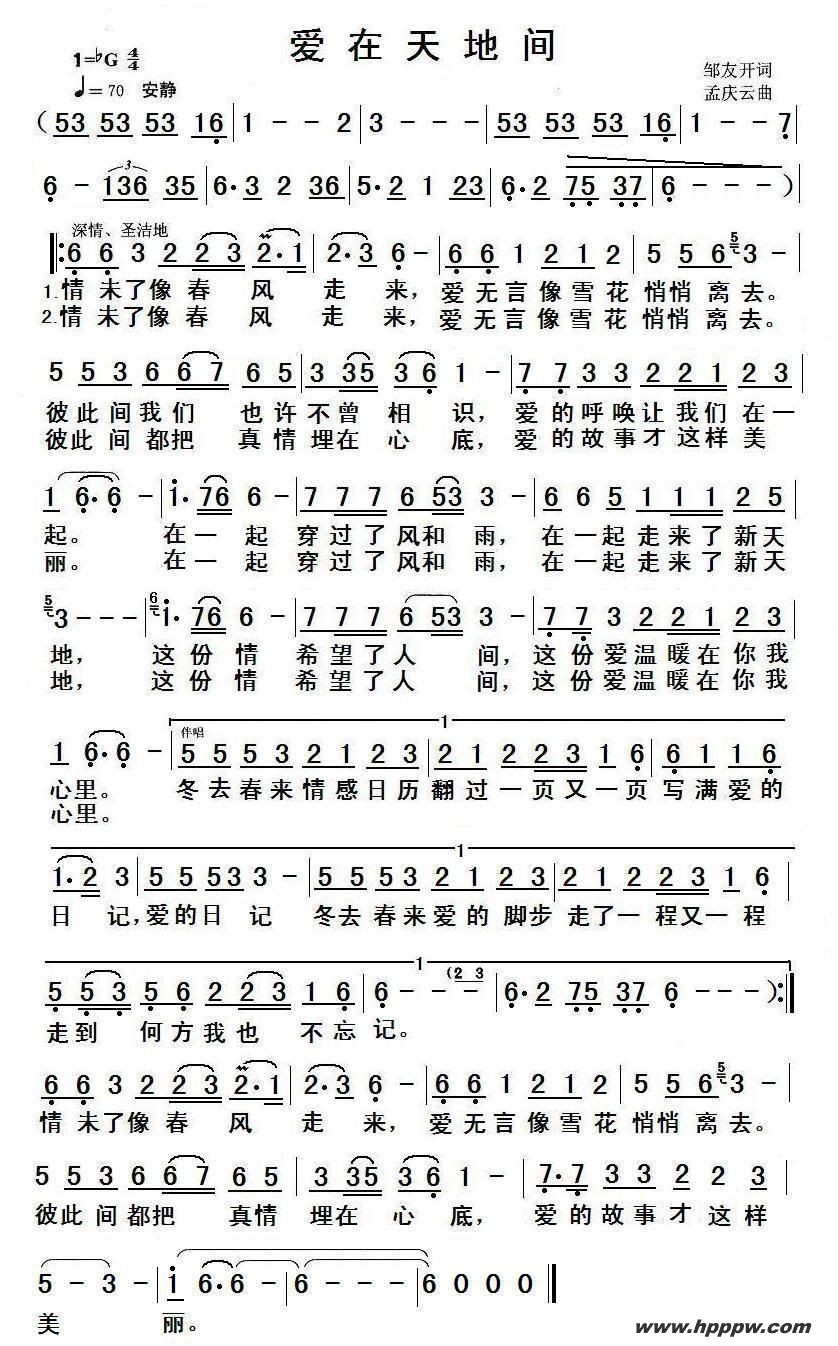 爱在天地间
1=♭G 4/4
♩=70 安静
邹友开词
孟庆云曲
( 53 53 53 16 | 1 - - 2 | 3 - - - | 53 53 53 16 | 1 - - 7 |
6 - 136 35 | 6· 3 2 36 | 5· 2 1 23 | 6· 2 75 37 | 6 - - - )
3
深情、圣洁地
6 6 3 2 2 3 2· 1 | 2· 3 6 - | 6 6 1 2 1 2 | 5 5 6 5 3 - |
1.情未了像春风走来,爱无言像雪花悄悄离去。
2.情未了像春风走来,爱无言像雪花悄悄离去。
5 5 3 6 6 7 6 5 | 3 35 3 6 1 - | 7 7 3 3 2 2 1 2 3 |
彼此间我们也许不曾相识,爱的呼唤让我们在一
彼此间都把真情埋在心底,爱的故事才这样美
1 6· 6 - | 1· 76 6 - | 7 7 7 6 53 3 - | 6 6 5 1 1 1 2 5 |
起。在一起穿过了风和雨,在一起走来了新天
丽。在一起穿过了风和雨,在一起走来了新天
5 3 - - - | 6 1· 76 6 - | 7 7 7 6 53 3 - | 7 7 3 2 2 1 2 3 |
地,这份情希望了人间,这份爱温暖在你我
地,这份情希望了人间,这份爱温暖在你我
1
伴唱
1 6· 6 - | 5 5 5 3 2 1 2 3 | 2 1 2 2 3 1 6 | 6 1 1 6 |
心里。冬去春来情感日历翻过一页又一页写满爱的
心里。
1
1· 2 3 | 5 5 53 3 - | 5 5 53 2 1 2 3 | 2 1 2 2 3 1 6 |
日记,爱的日记冬去春来爱的脚步走了一程又一程
1
5 5 3 5 6 2 2 3 1 6 | 6 - - - (2 3 | 6· 2 75 37 6 - - - ) :||
走到何方我也不忘记。
6 6 3 2 2 3 2· 1 | 2· 3 6 - | 6 6 1 2 1 2 | 5 5 6 5 3 - |
情未了像春风走来,爱无言像雪花悄悄离去。
5 5 3 6 6 7 6 5 | 3 35 3 6 1 - | 7· 7 3 3 2 2 3 |
彼此间都把真情埋在心底,爱的故事才这样
5 - 3 - | 1 6· 6 - | 6 - - - | 6 0 0 0 ||
美丽。
www.hpppw.com